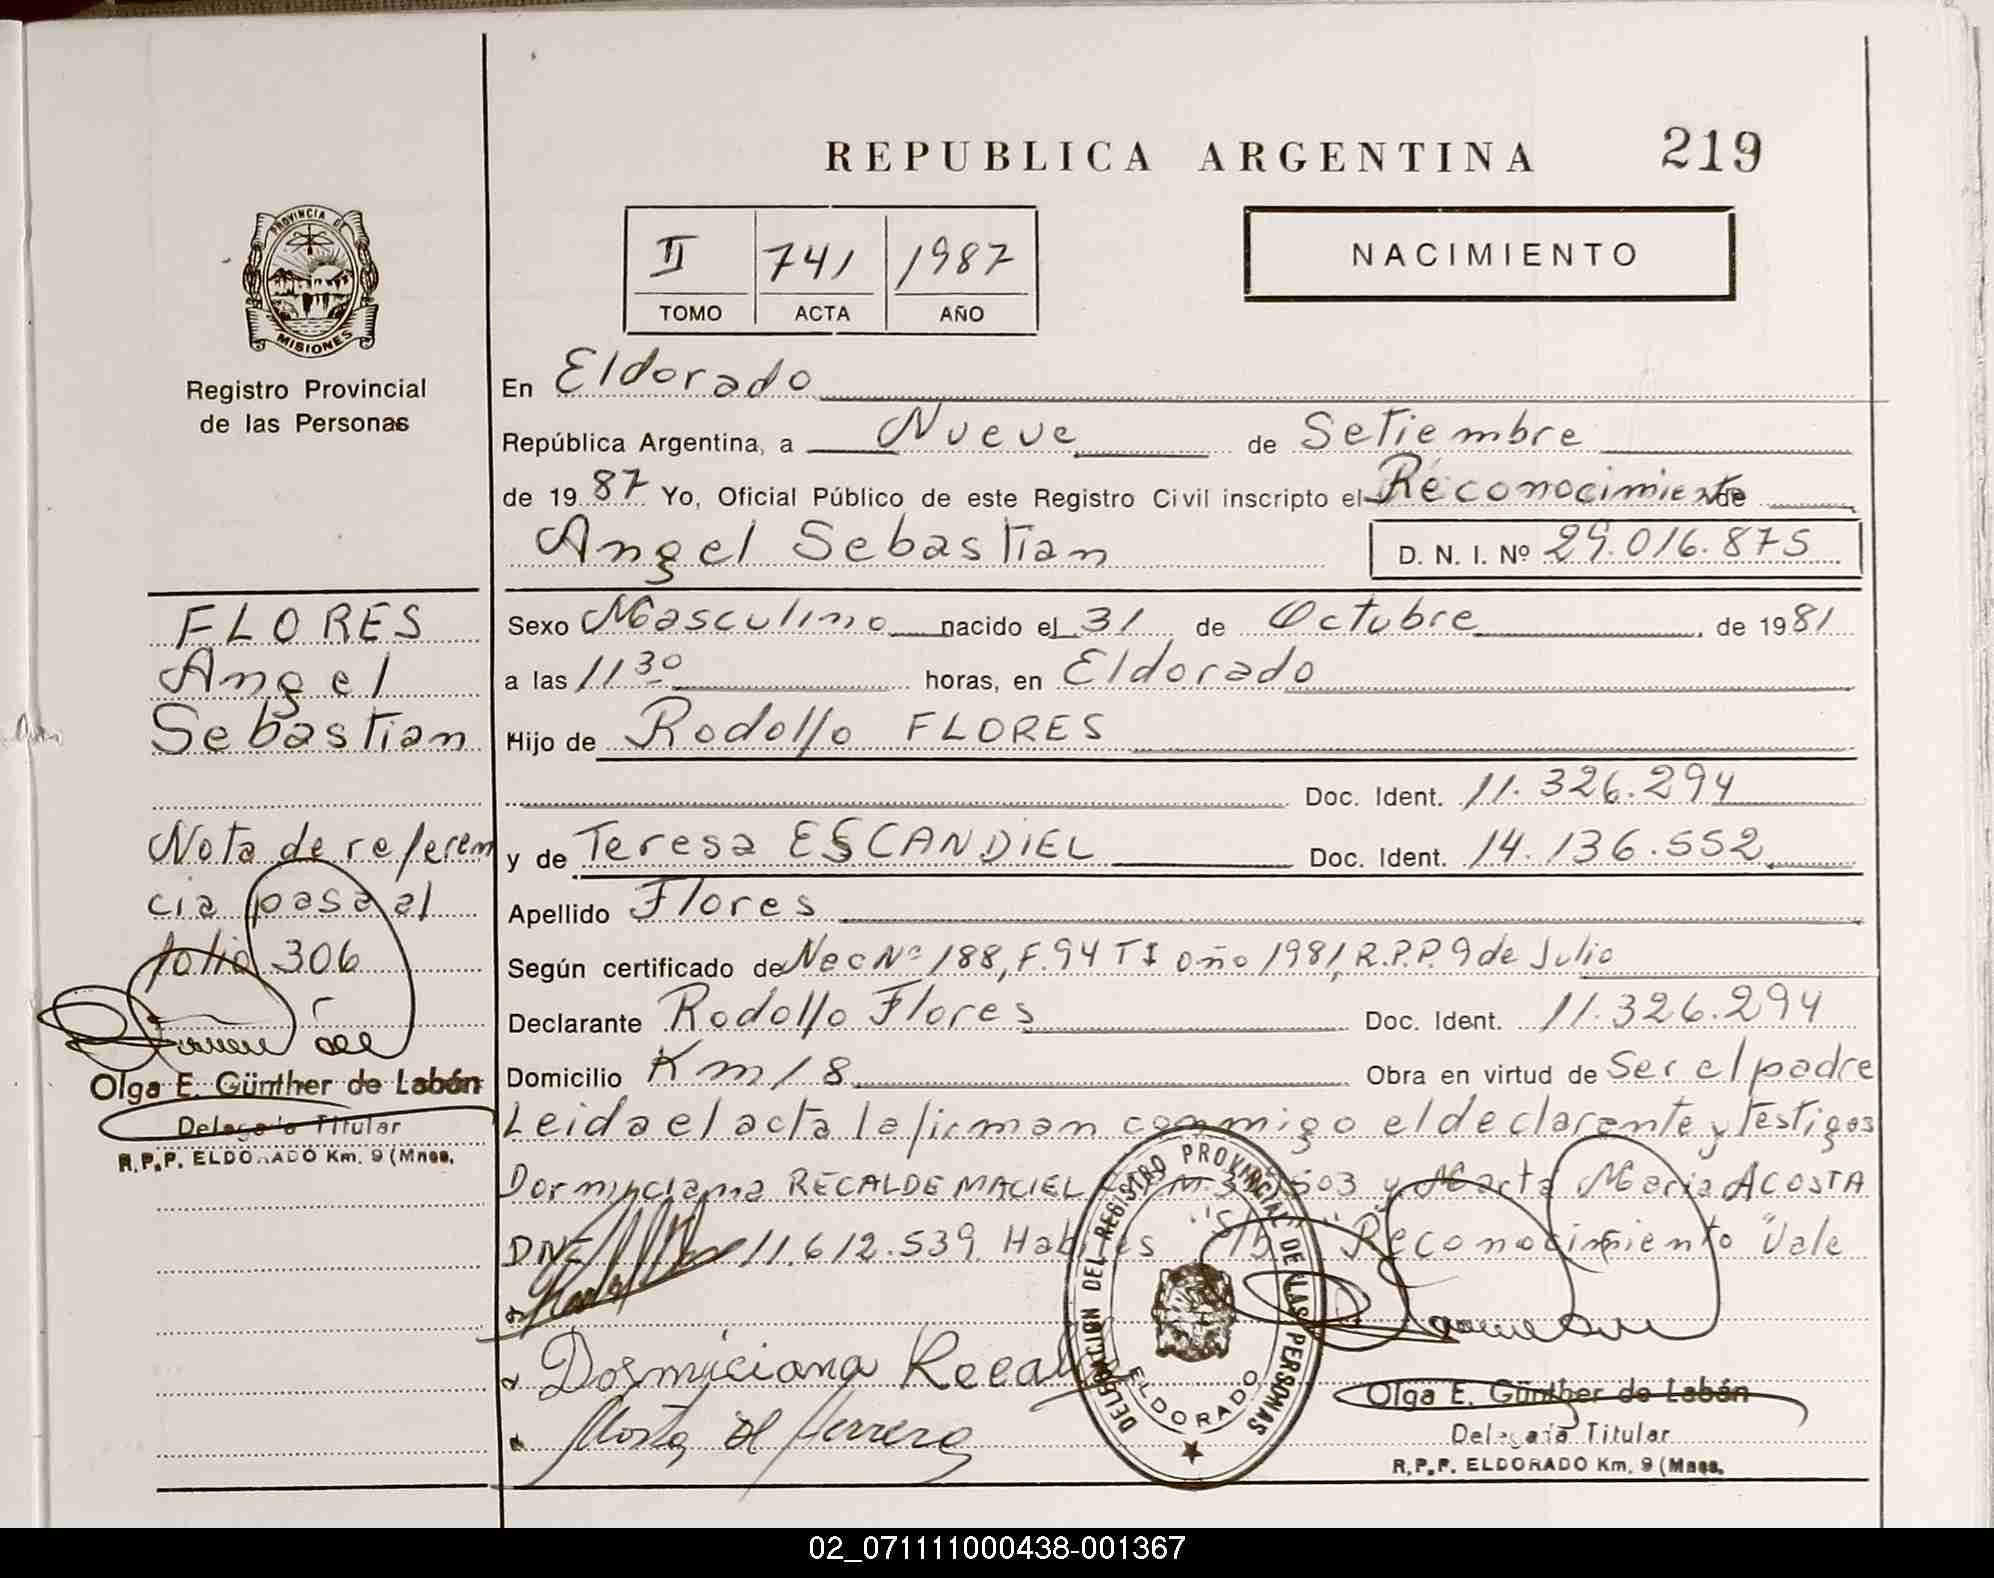 REPUBLICA ARGENTINA 219
PROVINCIA DE
MISIONES
Registro Provincial
de las Personas
II 741 1987
TOMO ACTA AÑO
NACIMIENTO
En Eldorado
República Argentina, a Nueve de Setiembre
de 1987 Yo, Oficial Público de este Registro Civil inscripto el Reconocimiento de
Angel Sebastian D. N. I. Nº 29.016.875
FLORES
Angel
Sebastian
Nota de referen
cia pasa al
folio 306
Olga E. Günther de Labán
Delegada Titular
R.P.P. ELDORADO Km. 9 (Mnes.
Sexo Masculino nacido el 31 de Octubre de 1981
a las 11 30 horas, en Eldorado
Hijo de Rodolfo FLORES
Doc. Ident. 11.326.294
y de Teresa ESCANDIEL Doc. Ident. 14.136.552
Apellido Flores
Según certificado de Nac Nº 188, F. 94 T I año 1981, R.P.P. 9 de Julio
Declarante Rodolfo Flores Doc. Ident. 11.326.294
Domicilio Km 18 Obra en virtud de Ser el padre
Leida el acta la firman conmigo el declarante y testigos
Dorminciana RECALDE MACIEL y Marta Maria ACOSTA
DNI 11.612.539 Habiles "S/b" "Reconocimiento" Vale
Dosmiciana Recalde
Marta de Herrera
DELEGACION DEL REGISTRO PROVINCIAL DE LAS PERSONAS
ELDORADO
Olga E. Günther de Labán
Delegada Titular
R.P.P. ELDORADO Km. 9 (Mnes.
02_071111000438-001367